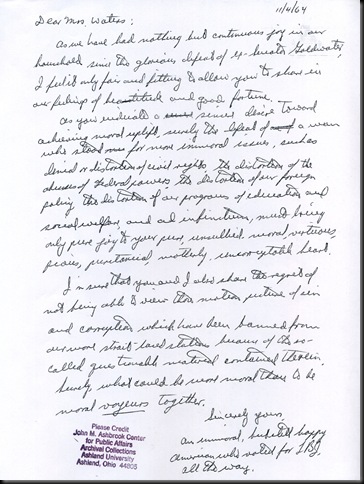 11/4/64
Dear Mrs. Waters:
As we have had nothing but continuous joy in our
household since the glorious defeat of ex-Senator Goldwater,
I feel it only fair and fitting to allow you to share in
our feelings of and good fortune.
As you indicate a sincere desire toward
achieving moral uplift, surely the defeat of a man
who stood for more immoral issues, such as
denial or distortion of civil rights, the distortion of the
abuses of Federal powers, the distortion of our foreign
policy, the distortion of our programs of education and
social welfare, and ad infinitum, must bring
only pure joy to your pure, unsullied, moral, virtuous,
pious, puritanical, motherly, heart.
I'm sure that you and I also share the regret of
not being able to view the motion picture of sin
and corruption which have been banned from
our more strait-laced stations because of the so-
called questionable material contained therein.
Surely, what could be more moral than to be
moral voyeurs together.
Sincerely yours,
an immoral, but still happy
American who voted for LBJ
all the way.
Please Credit
John M. Ashbrook Center
for Public Affairs
Archival Collections
Ashland University
Ashland, Ohio 44805